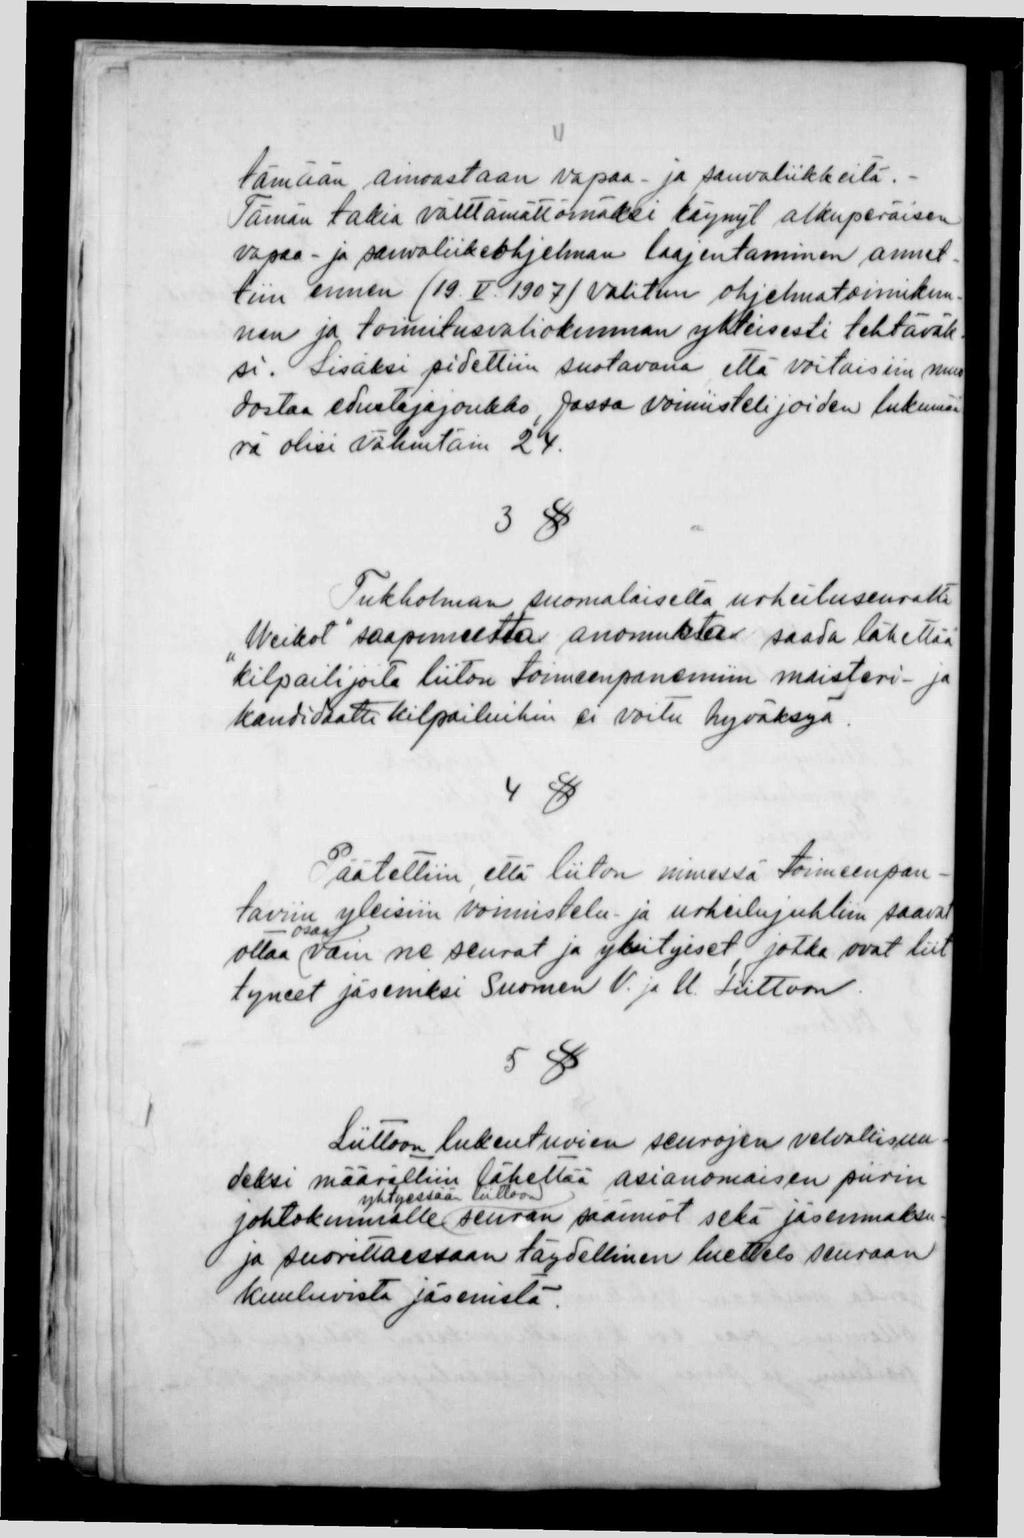 tämään ainoastaan vapaa- ja sauvaliikkeitä. -
Tämän takia välttämättömäksi käynyt alkuperäisen
vapaa- ja sauvaliikeohjelman laajentaminen annet-
tiin ennen (19. V. 1907) valitun ohjelmatoimikun-
nan ja toimitusvaliokunnan yhteisesti tehtäväk-
si. Lisäksi pidettiin suotavana että voitaisiin muo
dostaa edustajajoukko, jossa voimistelijoiden lukumää
rä olisi vähintäin 24.
3 §
Tukholman suomalaiselta urheiluseuralta
„Weikot" saapuneesta anomukta saada lähettää
kilpailijoita liiton toimeenpanemiin maisteri- ja
kandidaattikilpailuihin ei voitu hyväksyä.
4 §
Päätettiin, että liiton nimessä toimeenpan-
taviin yleisiin voimistelu- ja urheilujuhliin saavat
osaa
ottaa vain ne seurat ja yksityiset, jotka ovat liit
tyneet jäseniksi Suomen V. ja U. Liittoon.
5 §
Liittoon lukeutuvien seurojen velvollisuu-
deksi määrättiin lähettää asianomaisen piirin
yhtyessään liittoon
johtokunnalle seuran säännöt sekä jäsenmaksu-
ja suorittaessaan täydellinen luettelo seuraan
kuuluvista jäsenistä.